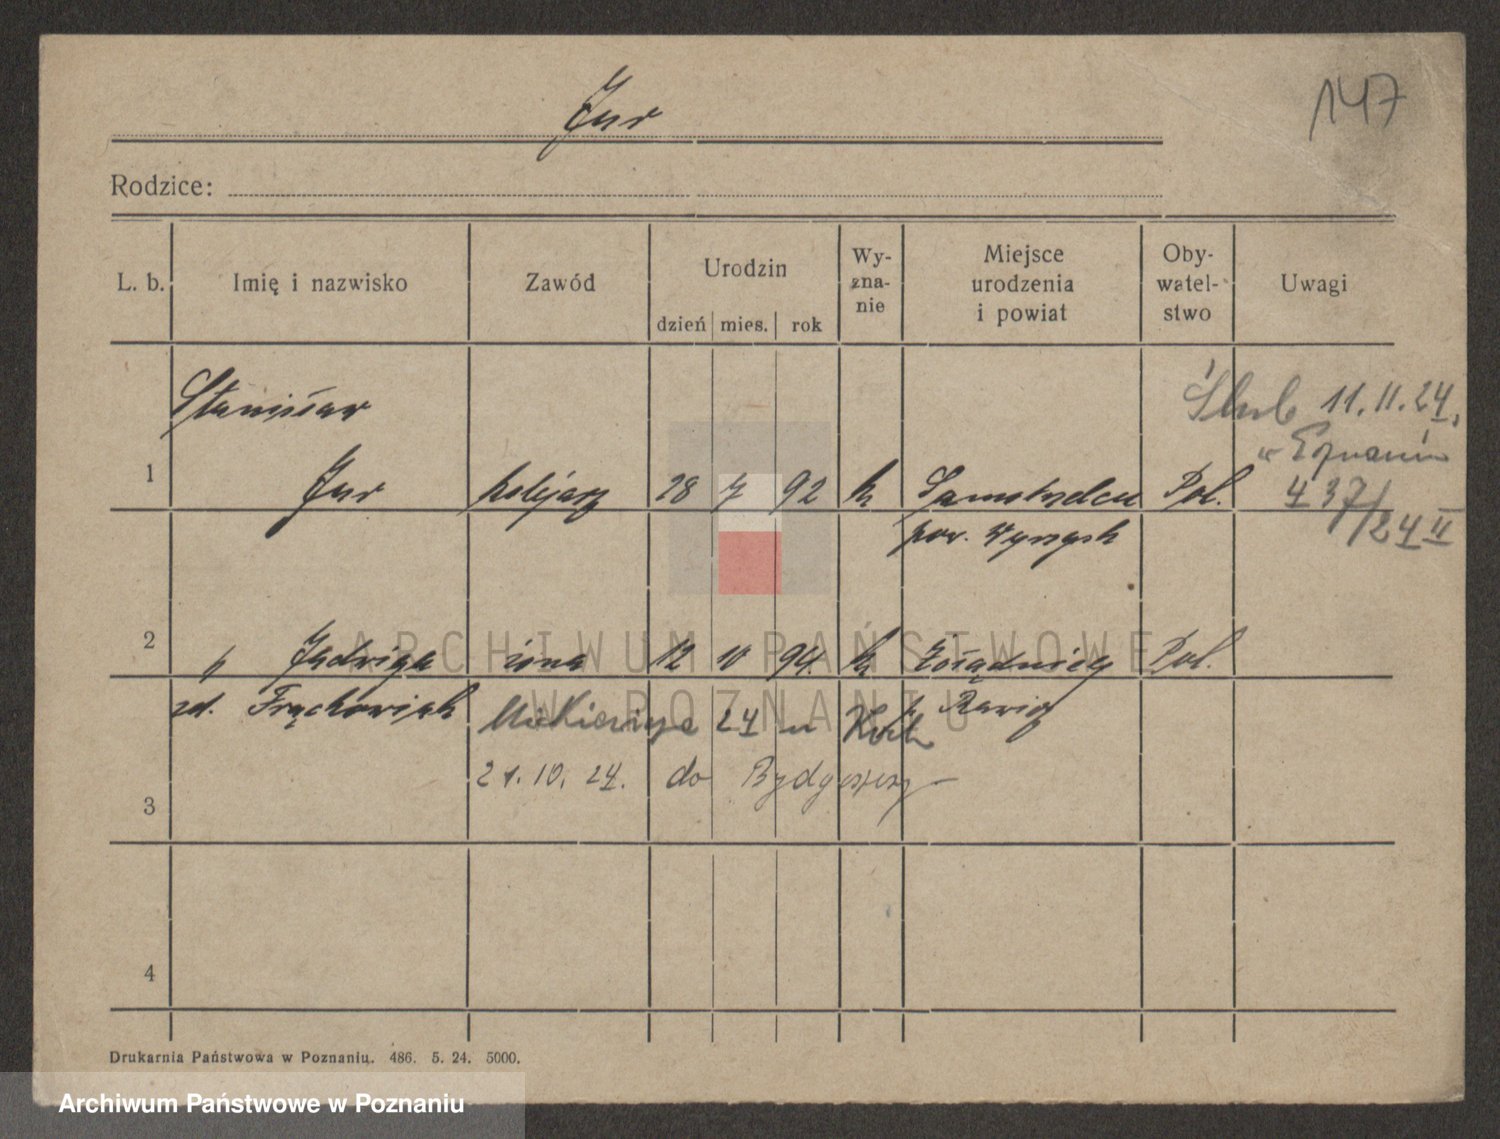 Jur
147
Rodzice:
L. b. Imię i nazwisko Zawód Urodzin dzień mies. rok Wy- zna- nie Miejsce urodzenia i powiat Oby- watel- stwo Uwagi
Stanisław
Ślub 11.11.24,
w Poznaniu
1 Jur kolejarz 28 7 92 k Samostrzelcu Pol. 437/24 II
pow. Wyrzysk
2 " Jadwiga żona 12 10 94. k Pol.
zd. Frąckowiak Mickiewicza 24 u
21.10.24. do Bydgoszczy
3
4
Drukarnia Państwowa w Poznaniu. 486. 5. 24. 5000.
ARCHIWUM PAŃSTWOWE
W POZNANIU
Archiwum Państwowe w Poznaniu